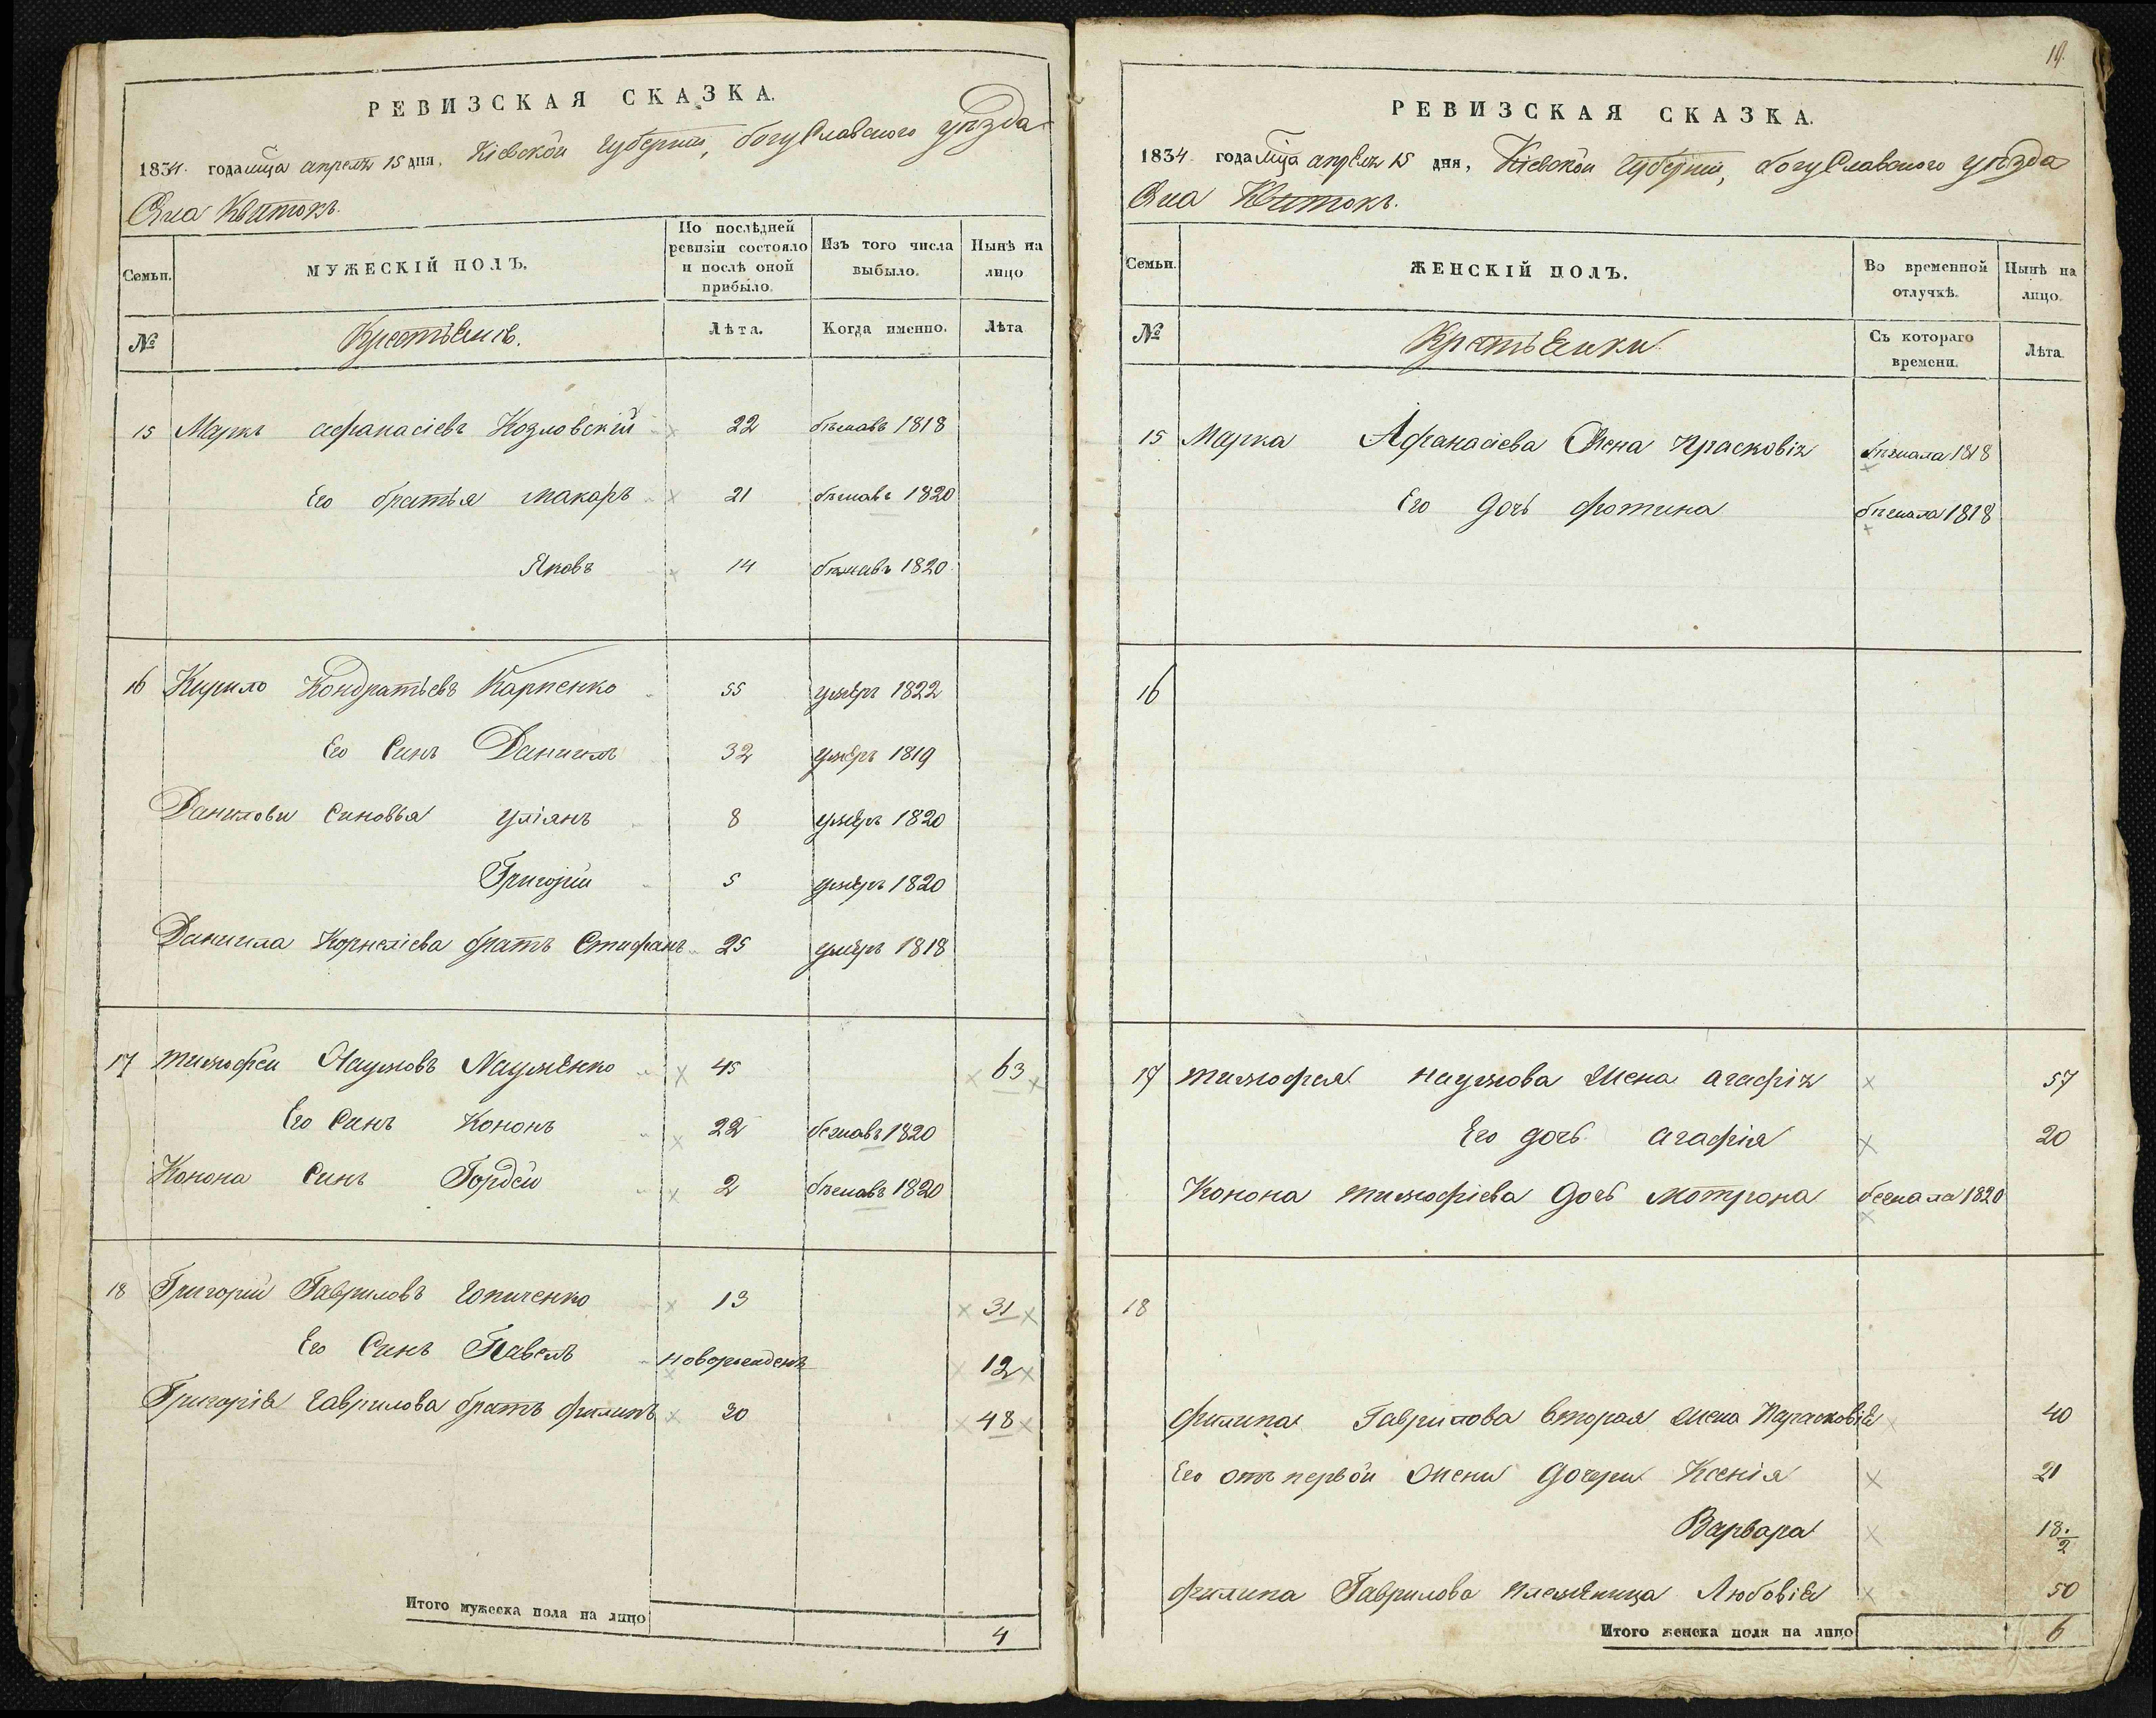 РЕВИЗСКАЯ СКАЗКА.
1834. года мца апреля 15 дня, Кіевской Губерніи, богуславского уѣзда
Села Квитокъ.
Семьи.
МУЖЕСКІЙ ПОЛЪ.
По послѣдней ревизіи состояло и послѣ оной прибыло.
Изъ того числа выбыло.
Нынѣ на лицо
№
Крестьяне.
Лѣта.
Когда именно.
Лѣта
15 Маркъ афанасіевъ Козловскій 22 бѣжавъ 1818
Его братья макаръ 21 бѣжавъ 1820
Яковъ 14 бѣжавъ 1820
16 Кирило Кондратьевъ Карпенко 55 умеръ 1822
Его Синъ Даниилъ 32 умеръ 1819
Данилови синовья уліянъ 8 умеръ 1820
Григорій 5 умеръ 1820
Даниила Корнеліева братъ Стифанъ 25 умеръ 1818
17 тимофей Наумовъ Науменко 45 63
Его Синъ Кононъ 22 бежавъ 1820
Конона Синъ Гордей 2 бѣжавъ 1820
18 Григорій Гавриловъ Гопиченко 13 31
Его Синъ Павелъ новорожденъ 12
Григорія Гаврилова братъ филипъ 30 48
Итого мужеска пола на лицо 4
19.
РЕВИЗСКАЯ СКАЗКА.
1834 года мца апреля 15 дня, Кіевской Губерніи, богуславского уѣзда
Села Квитокъ.
Семьи.
ЖЕНСКІЙ ПОЛЪ.
Во временной отлучкѣ.
Нынѣ на лицо.
№
Крестьянки
Съ котораго времени.
Лѣта.
15 Марка Афанасіева Жена Прасковія бѣжала 1818
Его дочь фотина бѣжала 1818
16
17 тимофея наумова жена агафія 57
Его дочь агафія 20
Конона тимофіева дочь мотрона бежала 1820
18
филипа Гаврилова вторая жена Парасковія 40
Его отъ первой жени дочери Ксенія 21
Варвара 18. /2
филипа Гаврилова племяница Любовія 50
Итого женска пола на лицо 6